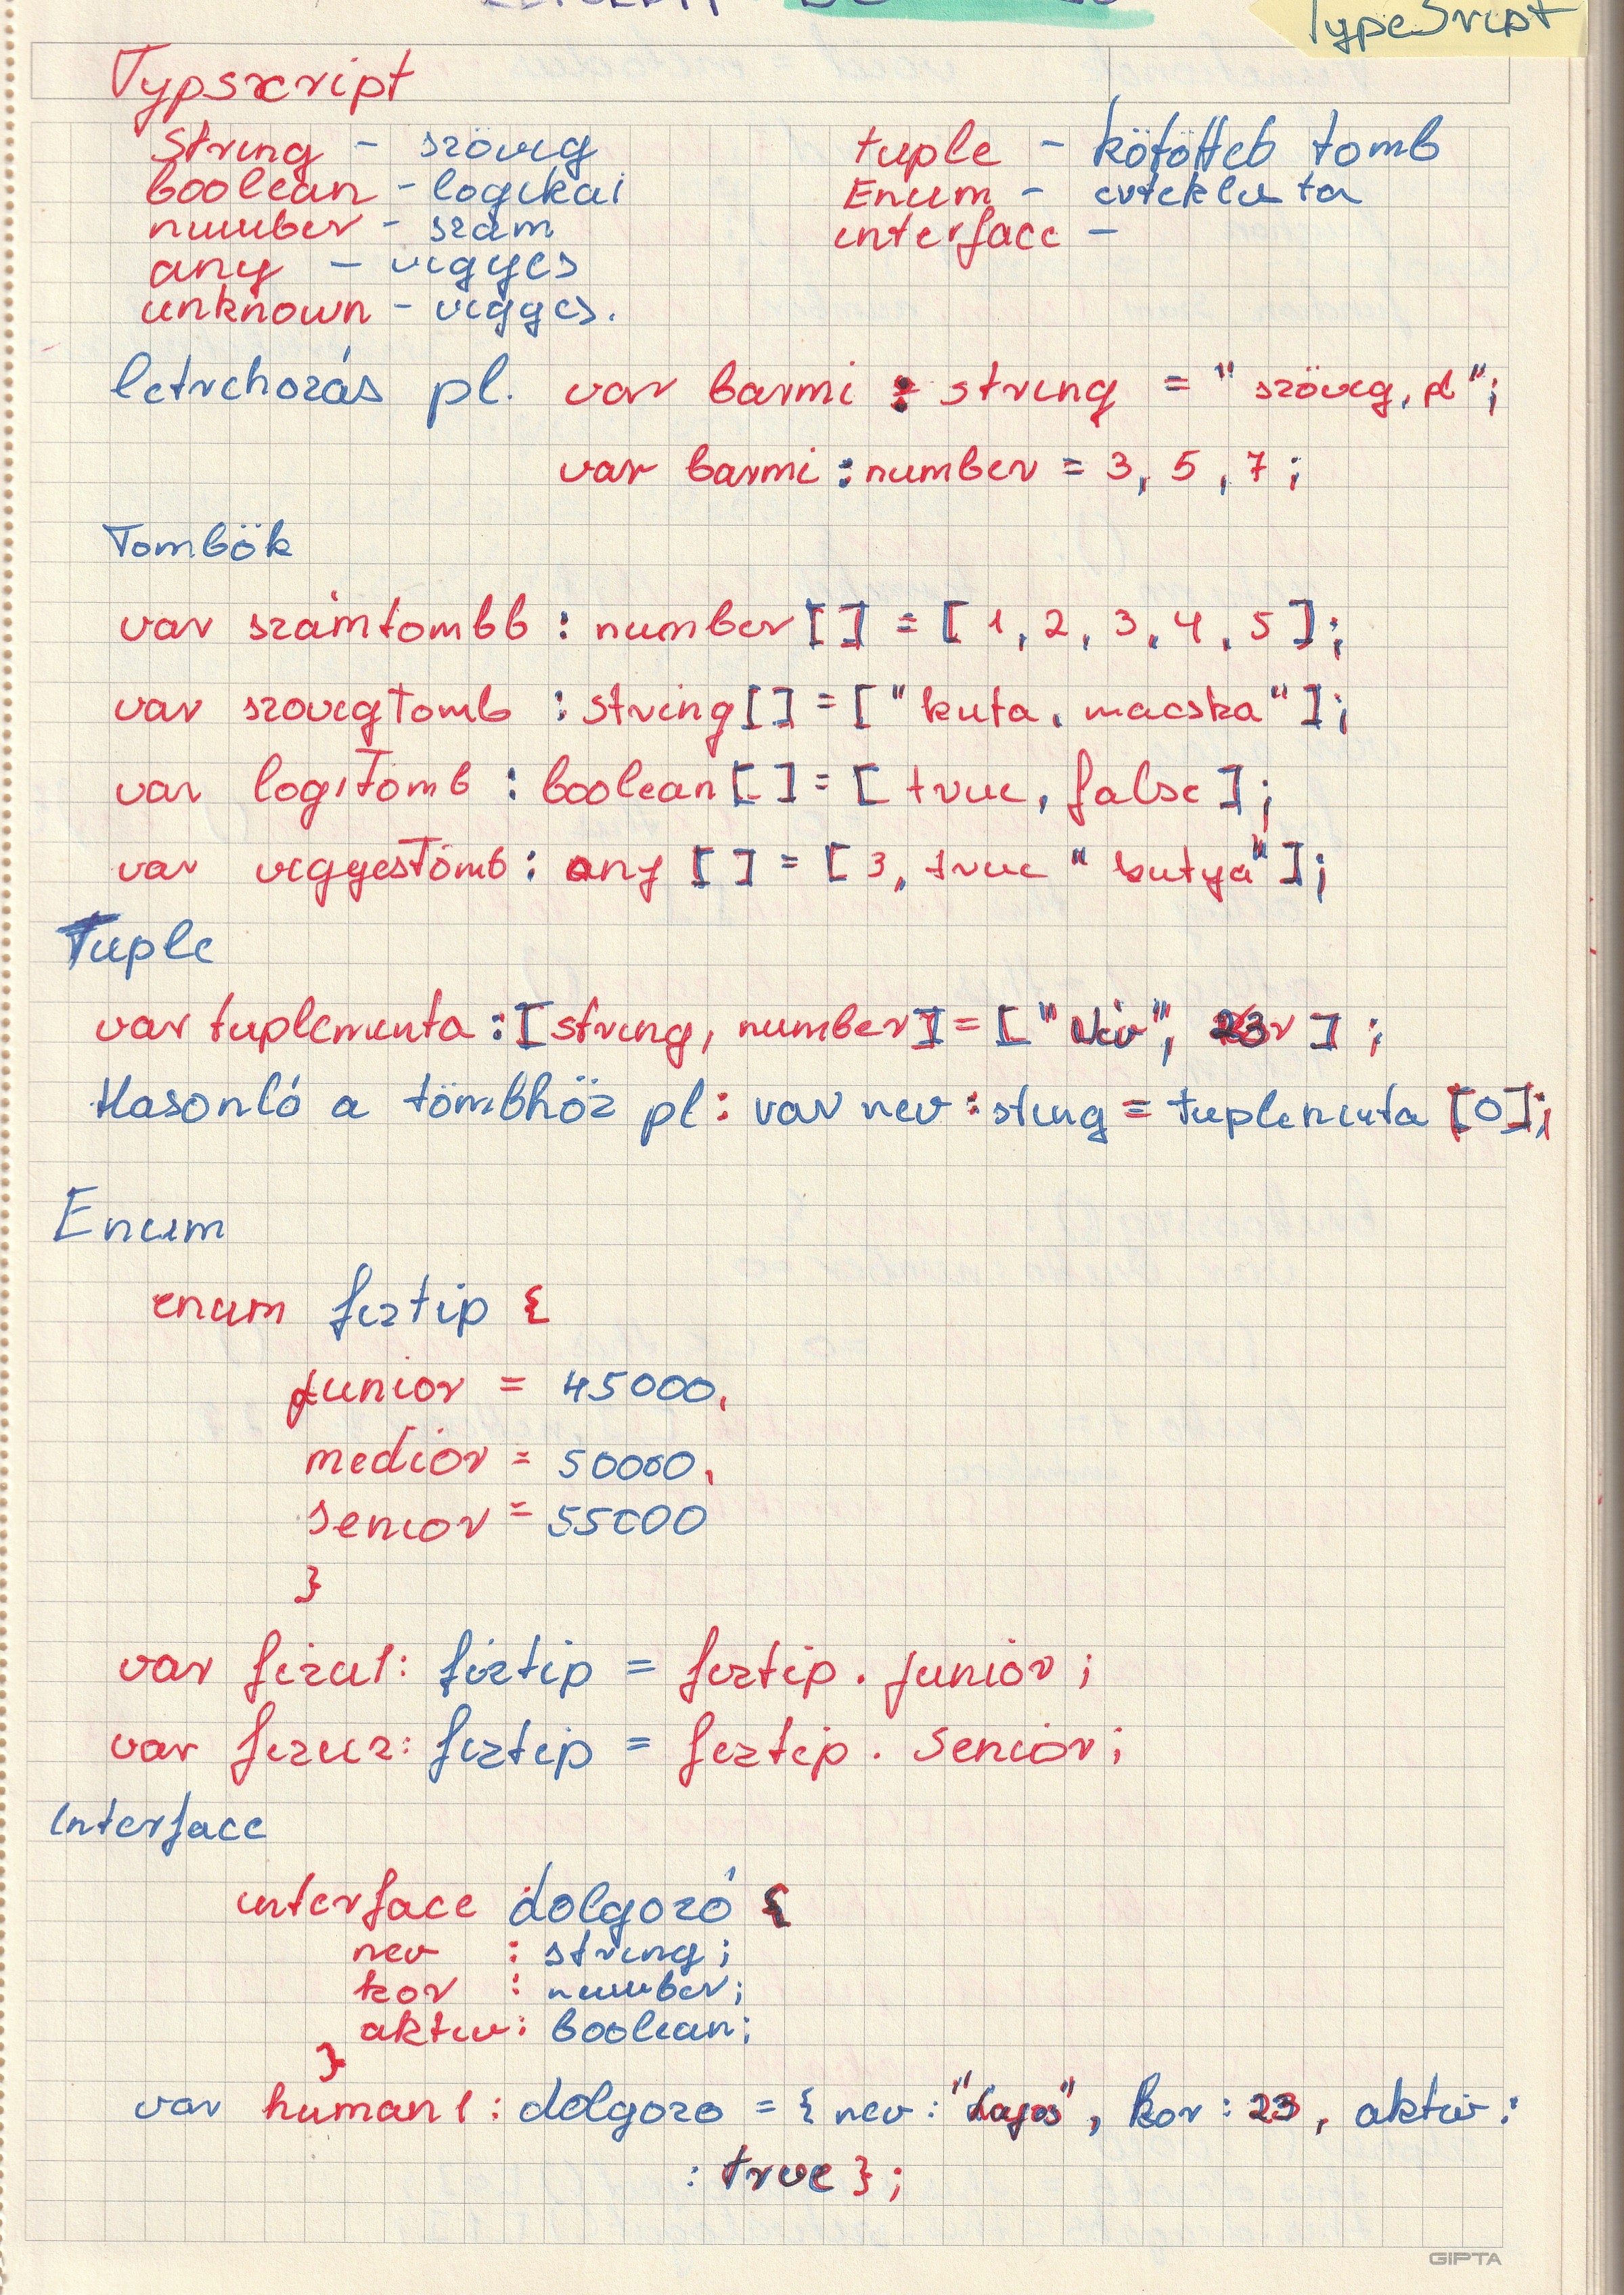 TypeSript
Typsxcript
string - szöveg
boolean - logikai
number - szám
any - vegyes
unknown - vegyes.
tuple - kötötteb tomb
Enum -
interface -
letrehozás pl. var barmi : string = "szöveg, pl";
var barmi : number = 3, 5, 7 ;
Tombök
var számtombb : number[] = [ 1, 2, 3, 4, 5 ];
var szovegTomb : string[] = ["kuta, macska"];
var logiTomb : boolean[] = [ true, false ];
var veggyesTömb : any [] = [ 3, true "kutya"];
Tuple
var tuplementa : [string, number] = ["Név", 23 ] ;
Hasonló a tömbhöz pl : var nev : steng = tuplementa [0];
Enum
enum fiztip {
junior = 45000,
medior = 50000,
senior = 55000
}
var fizu1: fiztip = fiztip . junior ;
var fizu2: fiztip = fiztip . senior ;
Interface
interface dolgozó {
nev : string ;
kor : number;
aktiv : boolean;
}
var human1 : dolgozo = { nev : "Lajos", kor : 23, aktiv :
: true } ;
GIPTA